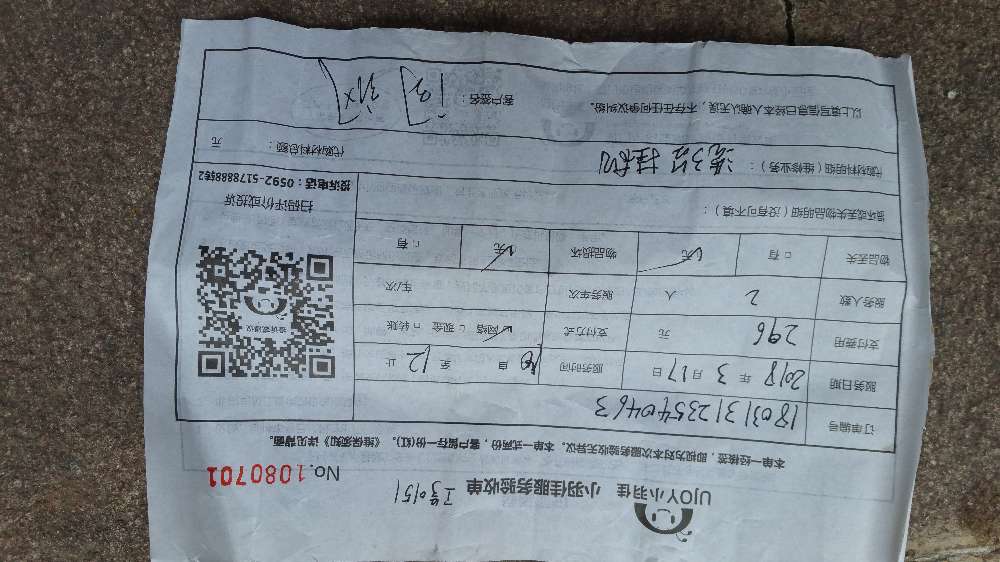 UJOY小羽佳 小羽佳服务验收单 工号0151
No.1080701
本单一经接签，即视为对本次服务验收无异议。本单一式两份，客户留存一份(红)。《维保须知》详见背面。
订单编号 1803131235404463
服务日期 2018 年 3 月 17 日 服务时间 自 至 12 止
支付费用 296 元 支付方式 ☑网络 □现金 □转账
服务人数 2 人 服务车次 车/次
物品丢失 □有 ☑无 物品损坏 ☑无 □有
损坏或丢失物品明细（没有可不填）：
投诉或建议
扫码评价或投诉
投诉电话：0592-5178888转2
代购材料明细（维修业务）： 洗3台挂机
代购材料总额： 元
以上填写信息已经本人确认无误，不存在任何争议纠纷。 客户签名：